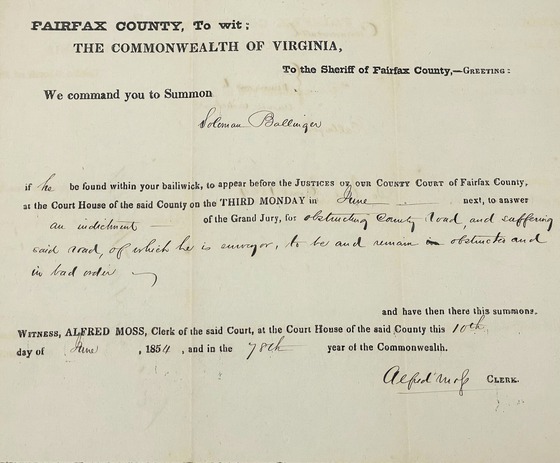 FAIRFAX COUNTY, To wit;
THE COMMONWEALTH OF VIRGINIA,
To the Sheriff of Fairfax County,—GREETING:
We command you to Summon
Soloman Ballinger
if he be found within your bailiwick, to appear before the JUSTICES OF OUR COUNTY COURT of Fairfax County,
at the Court House of the said County on the THIRD MONDAY in June next, to answer
an indictment of the Grand Jury, for obstructing County road, and suffering
said road, of which he is surveyor, to be and remain obstructed and
in bad order
and have then there this summons.
WITNESS, ALFRED MOSS, Clerk of the said Court, at the Court House of the said County this 10th
day of June, 1854, and in the 78th year of the Commonwealth.
Alfred Moss CLERK.